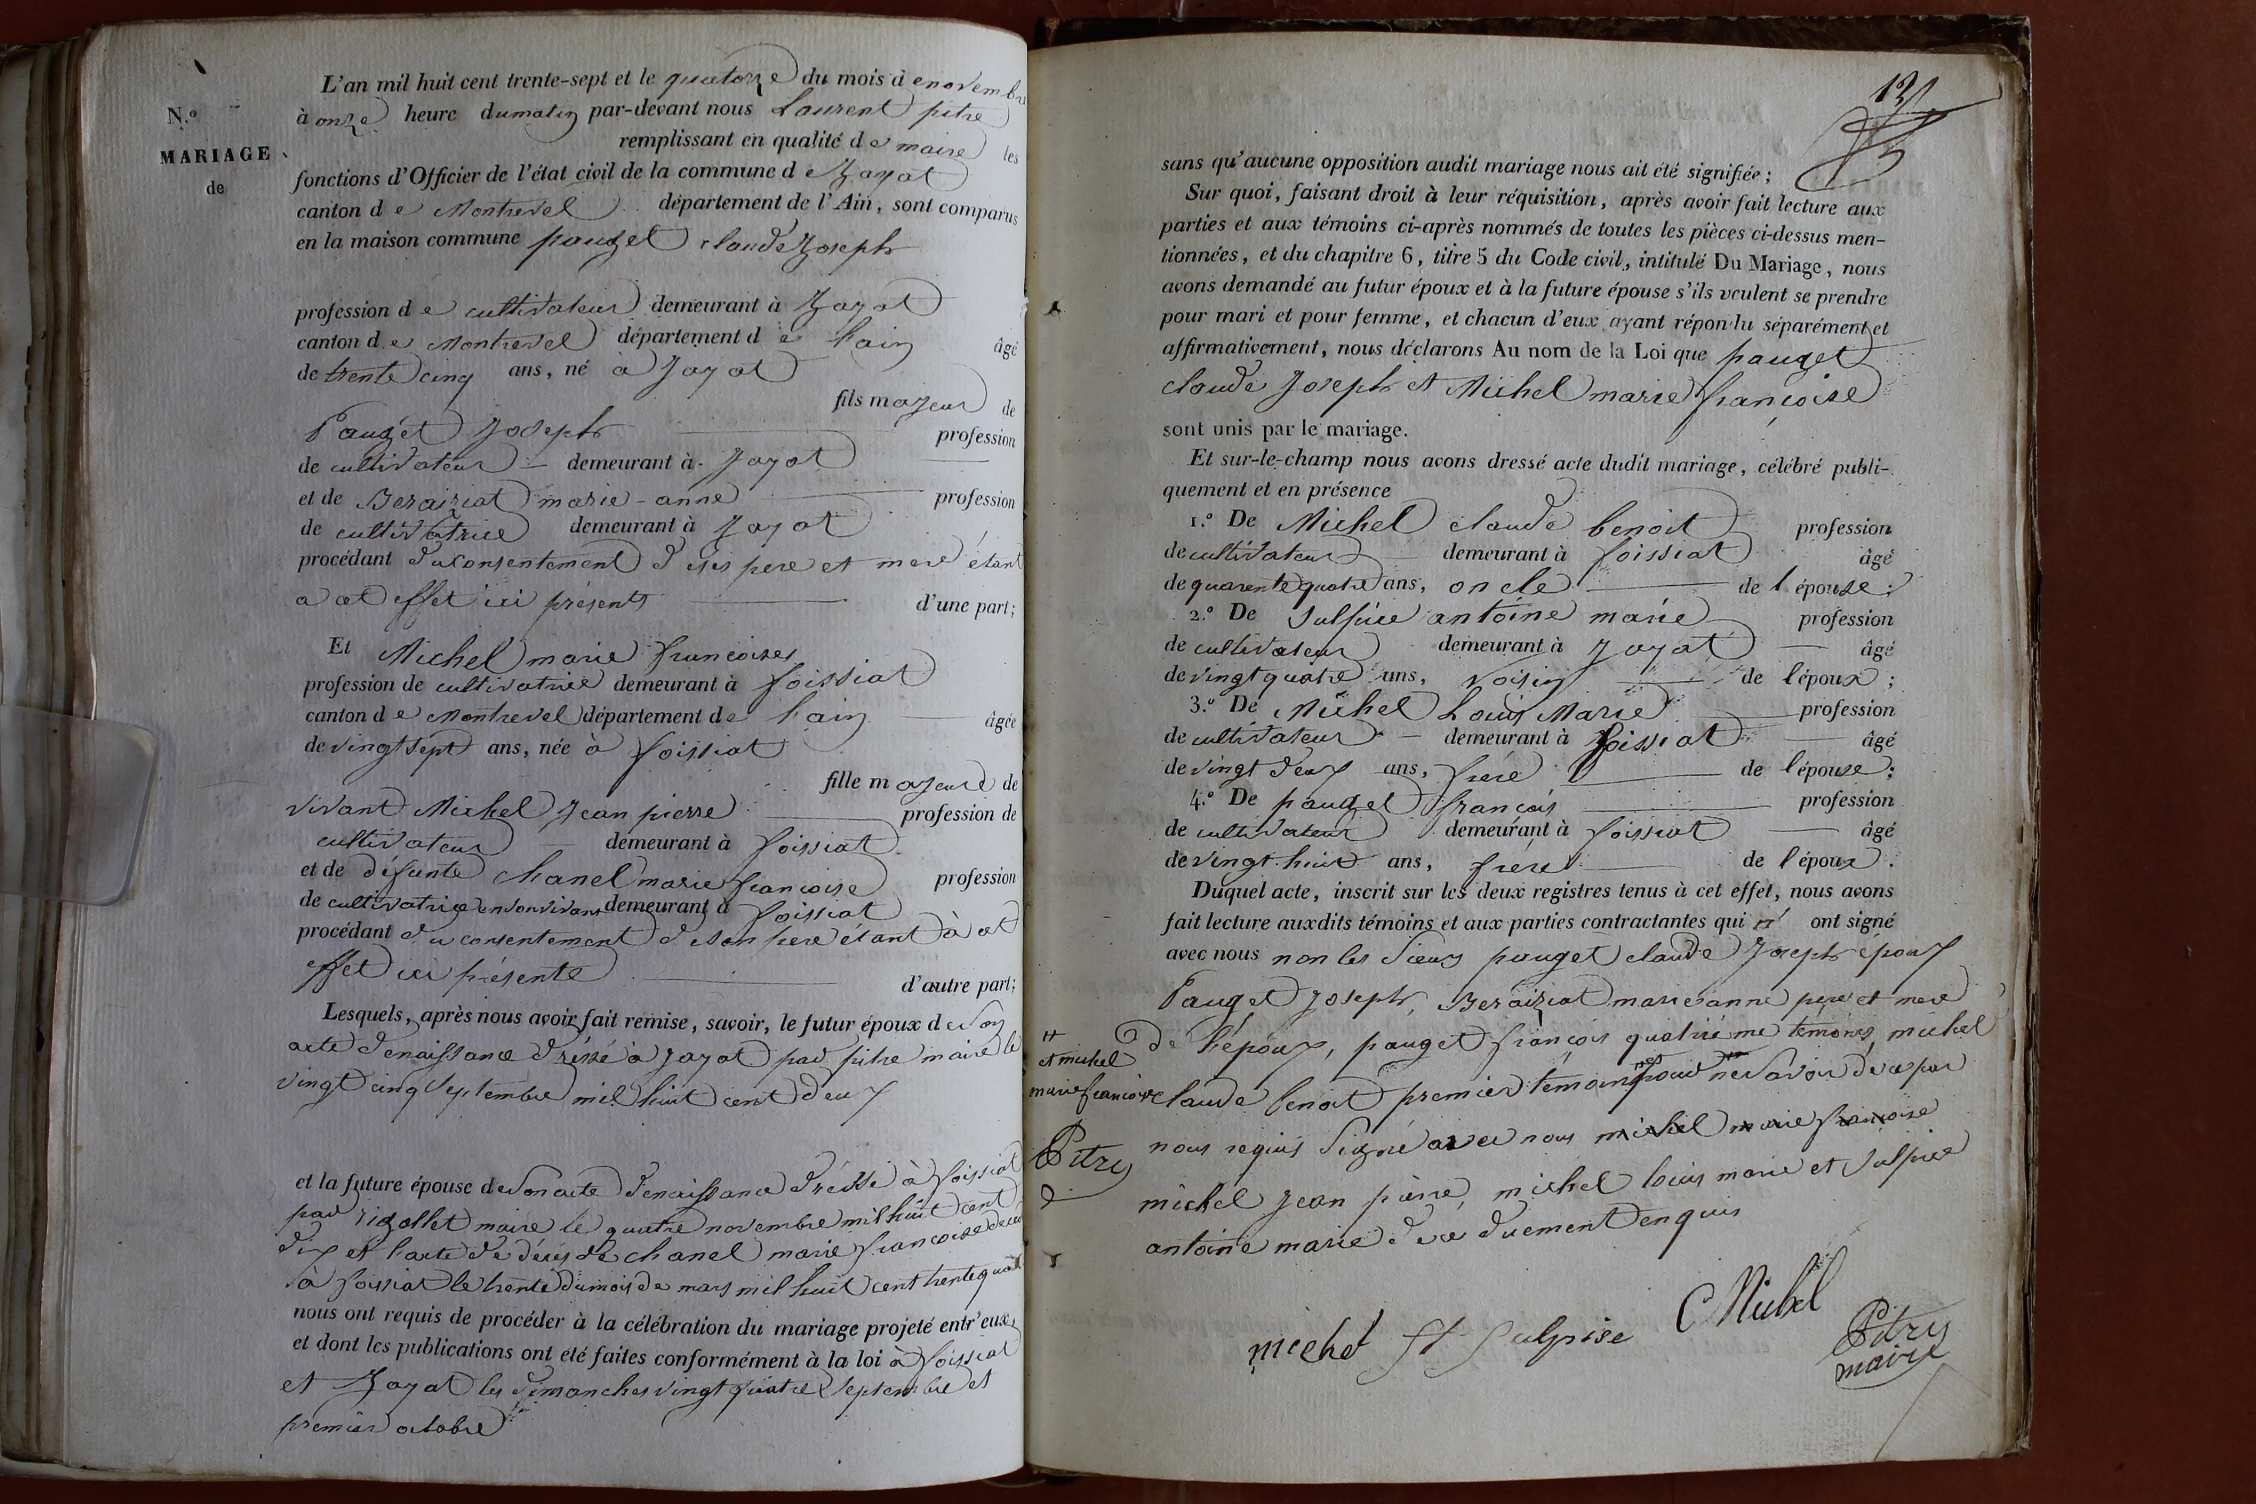 N.o
MARIAGE
de
L'an mil huit cent trente-sept et le quatorze du mois de novembre
à onze heure dumatin par-devant nous Laurent pitre
remplissant en qualité de maire les
fonctions d'Officier de l'état civil de la commune de Jayat
canton de Montrevel département de l'Ain, sont comparus
en la maison commune pauget claude Joseph
profession de cultivateur demeurant à Jayat
canton de Montrevel département de lain âgé
de trente cinq ans, né à Jayat
fils majeur de
Pauget Joseph profession
de cultivateur demeurant à Jayat
et de Beraiziat marie-anne profession
de cultivatrice demeurant à Jayat
procédant du consentement de ses pere et mere étant
a cet effet ici présents d'une part;
Et Michel marie francoises
profession de cultivatrice demeurant à foissiat
canton de Montrevel département de lain âgée
de vingt sept ans, née à foissiat
fille majeure de
vivant Michel Jean pierre profession de
cultivateur demeurant à foissiat
et de défunte chanel marie francoise profession
de cultivatrice en son vivant demeurant à foissiat
procédant du consentement de son pere étant à cet
effet ici présente d'autre part;
Lesquels, après nous avoir fait remise, savoir, le futur époux de son
acte denaissance dréssé à Jayat par pitre maire le
vingt cinq septembre mil huit cent deux
et la future épouse de son acte denaissance dréssé à foissiat
par rigollet maire le quatre novembre mil huit cent
dix et lacte de décès de chanel marie francoise
à foissiat le trente dumois de mars mil huit cent trente quatre
nous ont requis de procéder à la célébration du mariage projeté entr'eux,
et dont les publications ont été faites conformément à la loi à foissiat
et Jayat les dimanches vingt quatre septembre et
premier octobre
13
sans qu'aucune opposition audit mariage nous ait été signifiée;
Sur quoi, faisant droit à leur réquisition, après avoir fait lecture aux
parties et aux témoins ci-après nommés de toutes les pièces ci-dessus men-
tionnées, et du chapitre 6, titre 5 du Code civil, intitulé Du Mariage, nous
avons demandé au futur époux et à la future épouse s'ils veulent se prendre
pour mari et pour femme, et chacun d'eux ayant répondu séparément et
affirmativement, nous déclarons Au nom de la Loi que pauget
claude Joseph et Michel marie françoise
sont unis par le mariage.
Et sur-le-champ nous avons dressé acte dudit mariage, célébré publi-
quement et en présence
1.o De Michel claude benoit profession
de cultivateur demeurant à foissiat âgé
de quarente quatre ans, oncle de l'épouse;
2.o De Sulpice antoine marie profession
de cultivateur demeurant à Jayat âgé
de vingt quatre ans, voisin de l'époux;
3.o De Michel Louis Marie profession
de cultivateur demeurant à foissiat âgé
de vingt deux ans, frére de l'épouse;
4.o De pauget françois profession
de cultivateur demeurant à foissiat âgé
de vingt huit ans, frére de l'époux.
Duquel acte, inscrit sur les deux registres tenus à cet effet, nous avons
fait lecture auxdits témoins et aux parties contractantes qui n' ont signé
avec nous non les Sieurs pauget claude Joseph époux
Pauget Joseph, Beraiziat marie anne pere et mere
de l'époux, pauget françois quatriéme témoins, michel
claude benoit premier témoins pour ne savoir de ce par
nous requis Signé avec nous michel marie francoise
michel Jean pierre, michel louis marie et Sulpice
antoine marie de ce duement enquis
et michel
marie francoise
Pitre
michel St Sulpise C Michel
Pitre
maire